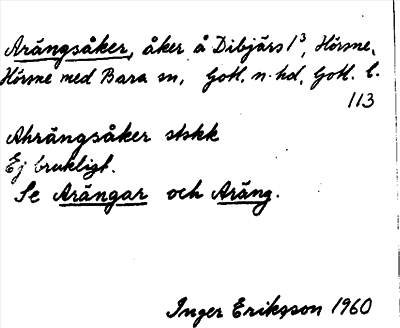 Arängsåker, åker å Dibjärs 1³, Hörsne,
Hörsne med Bara sn, Gotl. n. hd, Gotl. l.
113
Ahrängsåker stskk
Ej brukligt.
Se Arängar och Aräng.
Inger Eriksson 1960